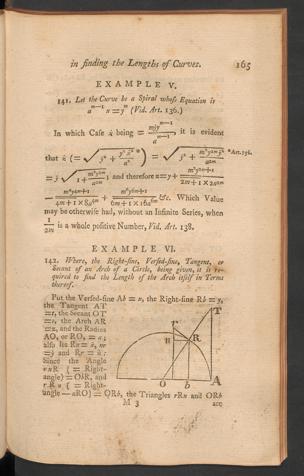 in finding the Lengths of Curves. 165
EXAMPLE V.
141. Let the Curve be a Spiral whose Equation is
a^{m-1} u = y^m (Vid. Art. 136.)
In which Case ẋ being = , it is evident
that ż (=
= ẏ and therefore z=y+
&c. Which Value
may be otherwise had, without an Infinite Series, when
1/2m is a whole positive Number, Vid. Art. 138.
EXAMPLE VI.
142. Where, the Right-sine, Versed-sine, Tangent, or
Secant of an Arch of a Circle, being given, it is re-
quired to find the Length of the Arch itself in Terms
thereof.
Put the Versed-sine Ab = x, the Right-sine Rb = y,
the Tangent AT
=t, the Secant OT
=s, the Arch AR
=z, and the Radius
AO, or RO, = a;
also let Rn = ẋ, nr
= ẏ and Rr = ż:
Since the Angle
rnR (= Right-
angle) = ObR, and
rRn (= Right-
angle — nRO) = ORb, the Triangles rRn and ORb
M 3 are
r
T
n
R
O b A